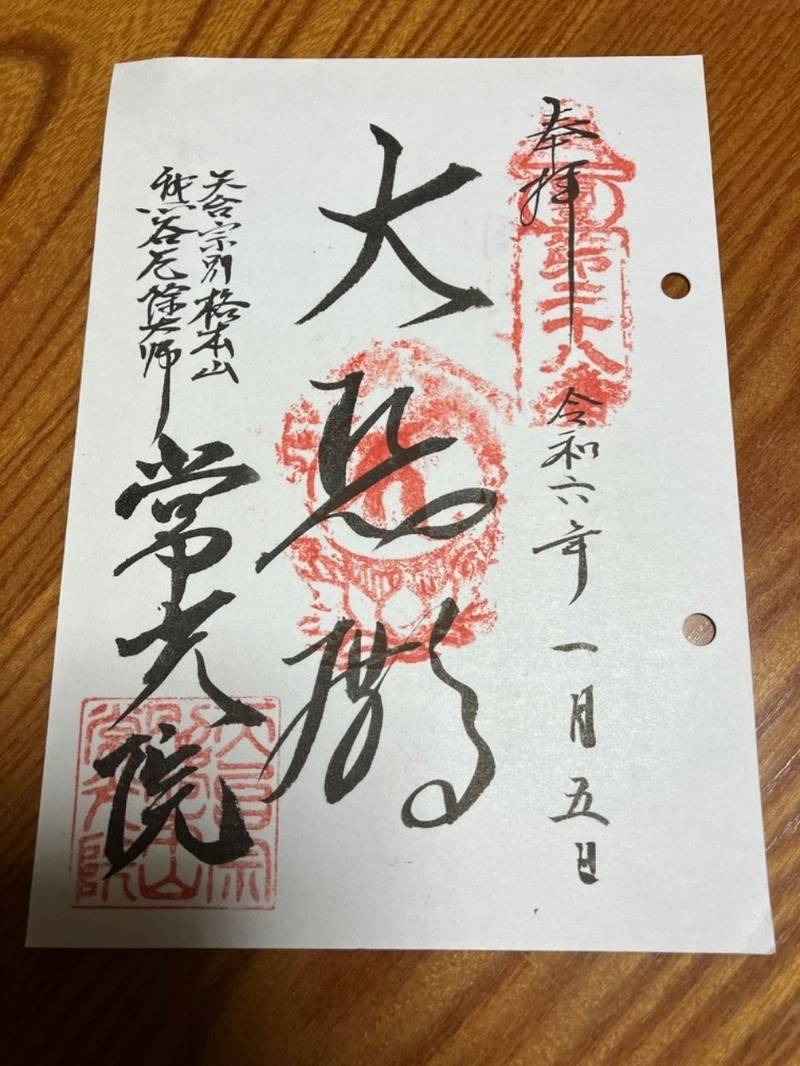 奉拝
第三十八番
令和六年一月五日
大
天台宗別格本山
熊谷厄除大師
常光院
天台宗
常光院